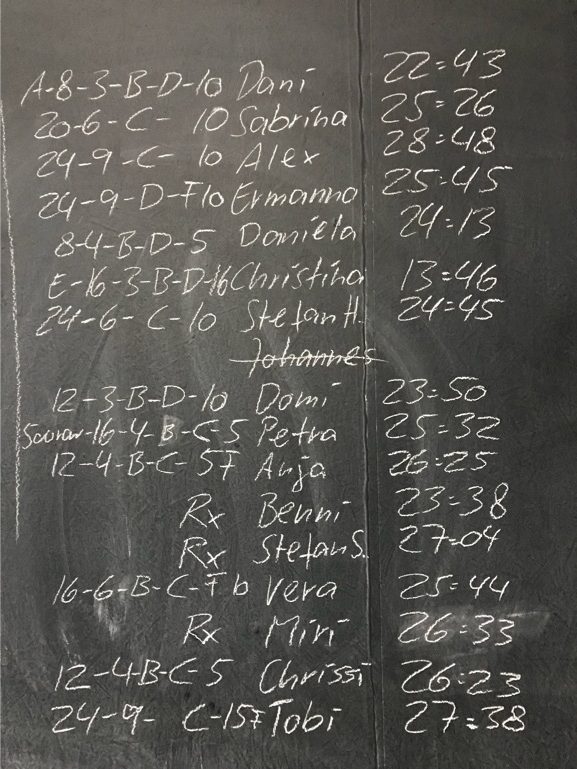 A-8-3-B-D-10 Dani 22:43
20-6-C-10 Sabrina 25:26
24-9-C-10 Alex 28:48
24-9-D-F10 Ermanno 25:45
8-4-B-D-5 Daniela 24:13
E-16-3-B-D-16 Christina 13:46
24-6-C-10 Stefan H. 24:45
Johannes
12-3-B-D-10 Domi 23:50
16-4-B-C-5 Petra 25:32
12-4-B-C-5F Anja 26:25
Rx Benni 23:38
Rx Stefan S. 27:04
16-6-B-C-F6 Vera 25:44
Rx Miri 26:33
12-4-B-C-5 Chrissi 26:23
24-9-C-15F Tobi 27:38